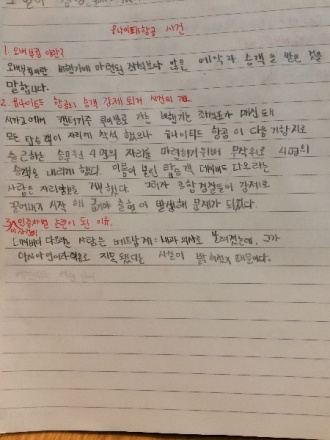 유나이티드항공 사건
1. 오버부킹 이란?
오버부킹이란 비행기에 마련된 좌석보다 많은 예약과 손님을 받은 것을
말합니다.
2. 유나이티드 항공의 승객 강제 퇴거 사건의 개요
시카고에서 켄터키주 루이빌로 가는 비행기는 좌석보다
모든 탑승객이 자리에 착석 했으나 유나이티드 항공이 다음 기착지로
출근하는 승무원 4명의 자리를 마련하기위해 무작위로 4명의
승객을 내리게 했다. 이름이 불린 탑승객 데이비드 다오라는
사람은 자리양보를 거부했다. 그러자 공항 경찰들이 강제로
끌어내기 시작
문제가 되었다.
3. 인종차별 논란이 된 이유.
데이비드 다오라는 사람은 베트남계 내과 의사로 알려졌는데, 그가
아시아인이라 지목 됐다는 사실이 밝혀졌기 때문이다.